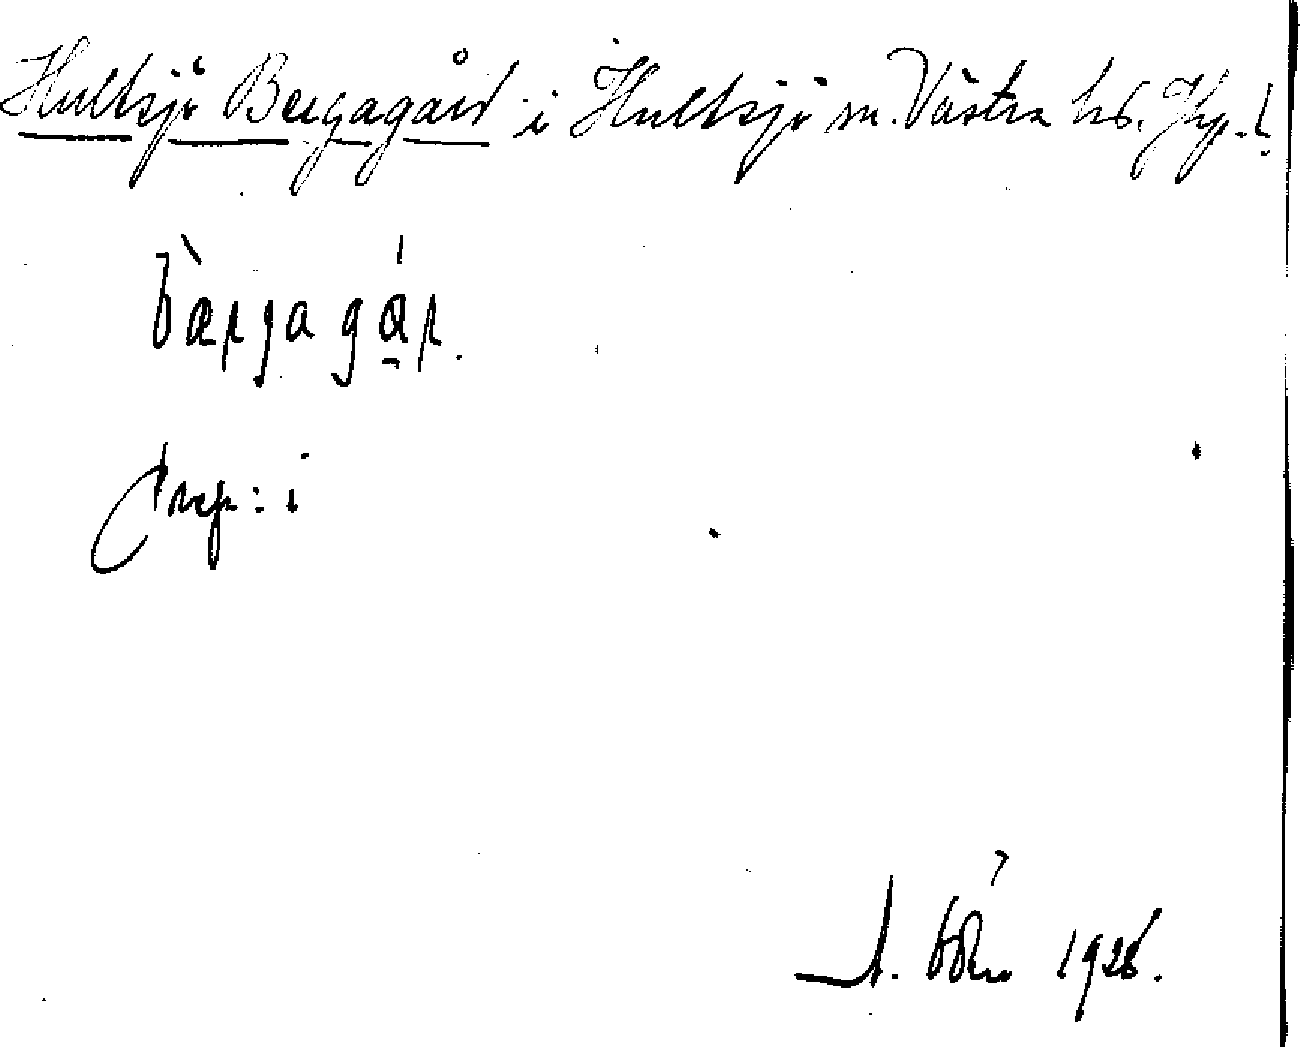 Hultsjö Bergagård i Hultsjö sn. Västra hd. Jkp. l.
bàrgagár.
Prep: i
1926.